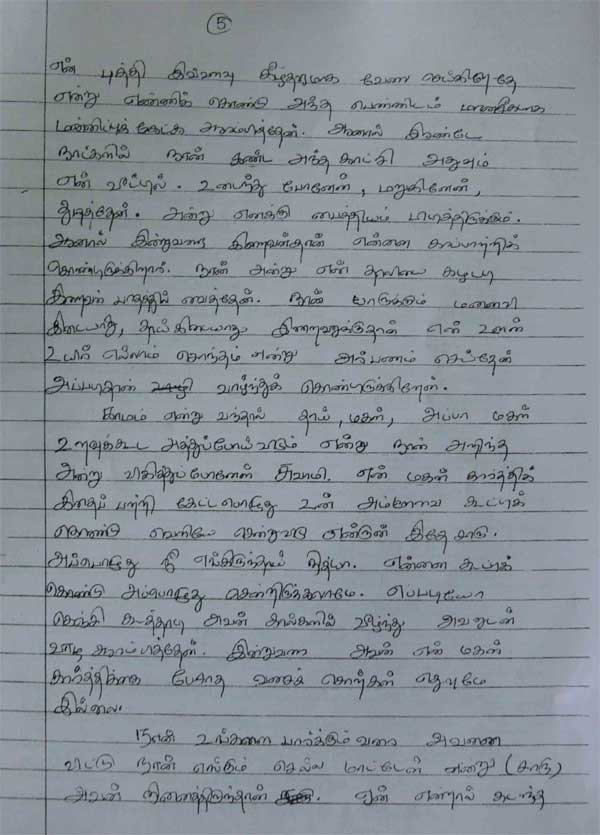 5
என் புத்தி இவ்வளவு கீழ்தரமாக வேலை செய்கிறதே
என்று எண்ணிக் கொண்டு அந்த பெண்ணிடம் மானசீகமாக
மன்னிப்புக் கேட்க ஆரம்பித்தேன். ஆனால் இரண்டே
நாட்களில் நான் கண்ட அந்த காட்சி அதுவும்
என் வீட்டில். உடைந்து போனேன், மறுகினேன்,
துடித்தேன். அன்று எனக்கு பைத்தியம் பிடித்திருக்கும்.
ஆனால் இன்றுவரை இறைவன்தான் என்னை காப்பாற்றிக்
கொண்டிருக்கிறார். நான் அன்று என் தாலியை கழட்டி
இறைவன் பாதத்தில் வைத்தேன். நான் யாருக்கும் மனைவி
கிடையாது, தாய் கிடையாது இறைவனுக்குத்தான் என் உடல்
உயிர் எல்லாம் சொந்தம் என்று அர்பணம் செய்தேன்
அப்படிதான் வாழ்ந்துக் கொண்டிருக்கிறேன்.
காமம் என்று வந்தால் தாய், மகன், அப்பா மகள்
உறவுக்கூட அத்துப்போய்விடும் என்று நான் அறிந்த
அன்று விக்கித்துப்போனேன் சுவாமி. என் மகன் கார்த்திக்
இதைப் பற்றி கேட்டபொழுது உன் அம்மாவை கூட்டிக்
கொண்டு வெளியே சென்றுவிடு என்றான் இதே சாரு.
அப்பொழுது நீ எங்கிருந்தாய் நித்யா. என்னை கூட்டிக்
கொண்டு அப்பொழுது சென்றிருக்கலாமே. எப்படியோ
கெஞ்சி கூத்தாடி அவன் கால்களில் வீழ்ந்து அவனுடன்
வாழ ஆரம்பித்தேன். இன்றுவரை அவன் என் மகன்
கார்த்திக்கை பேசாத வசைச் சொற்கள் எதுவுமே
இல்லை.
நான் உங்களை பார்க்கும் வரை அவனை
விட்டு நான் எங்கும் செல்ல மாட்டேன் என்று (சாரு)
அவன் நினைத்திருந்தான். ஏன் என்றால் கடந்த